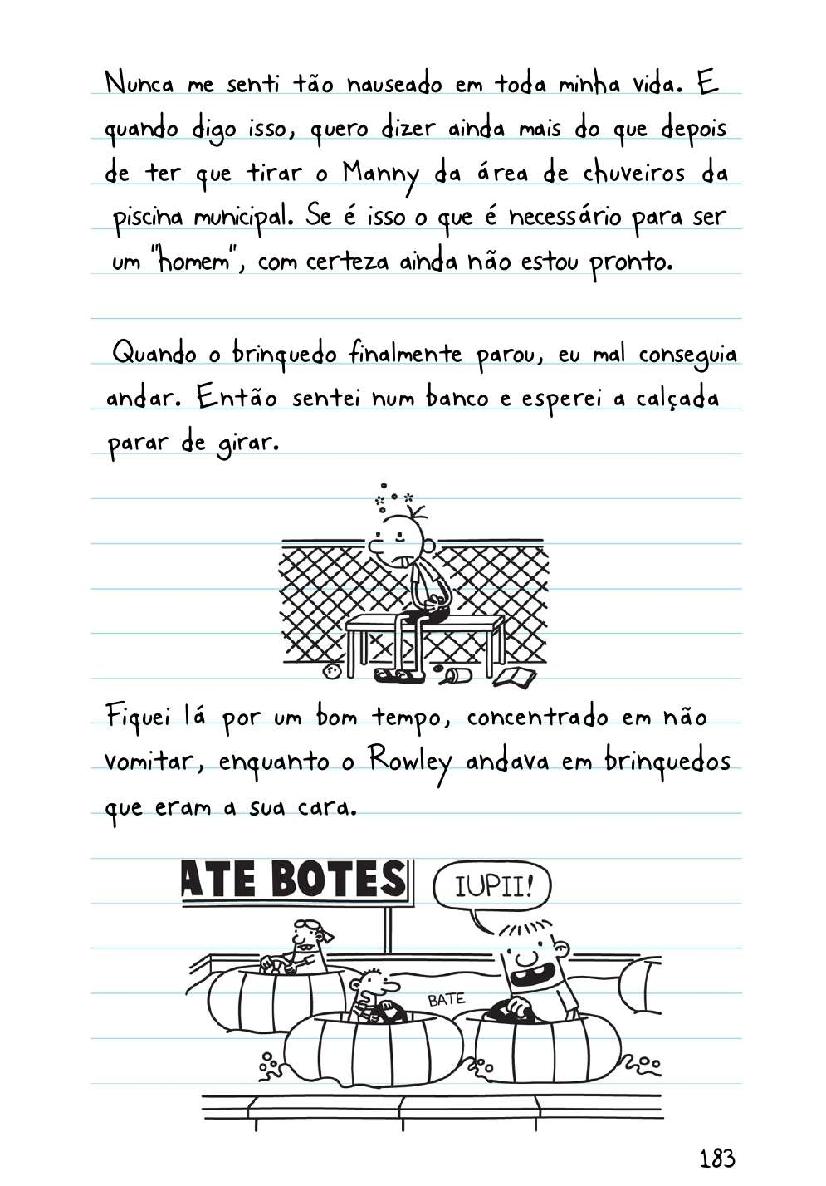 Nunca me senti tão nauseado em toda minha vida. E
quando digo isso, quero dizer ainda mais do que depois
de ter que tirar o Manny da área de chuveiros da
piscina municipal. Se é isso o que é necessário para ser
um "homem", com certeza ainda não estou pronto.
Quando o brinquedo finalmente parou, eu mal conseguia
andar. Então sentei num banco e esperei a calçada
parar de girar.
Fiquei lá por um bom tempo, concentrado em não
vomitar, enquanto o Rowley andava em brinquedos
que eram a sua cara.
ATE BOTES
IUPII!
BATE
183